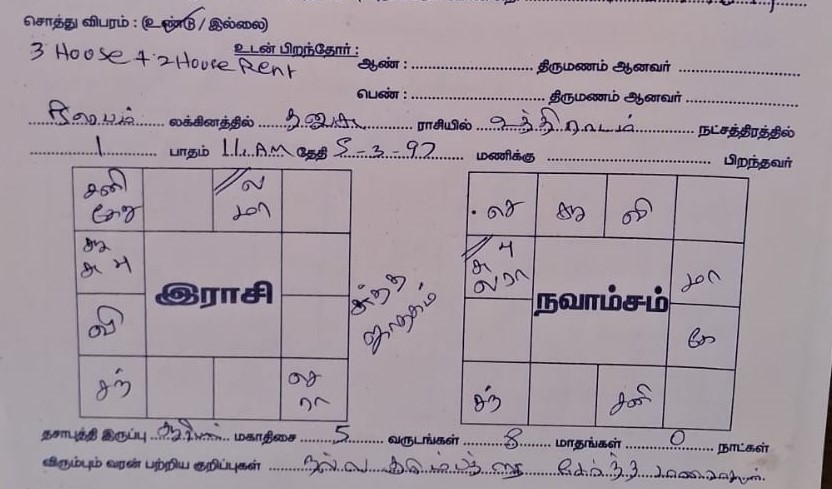 சொத்து விபரம் : (உண்டு / இல்லை)
3 House + 2 House Rent
உடன் பிறந்தோர் :
ஆண் : திருமணம் ஆனவர்
பெண் : திருமணம் ஆனவர்
ரிஷபம் லக்கினத்தில் தனுசு ராசியில் உத்திராடம் நட்சத்திரத்தில்
1 பாதம் 11. AM தேதி 5-3-97 மணிக்கு பிறந்தவர்
சனி கேது
ல மா
சூ சு பு
இராசி
வி
சந்
செ ரா
சுத்த ஜாதகம்
செ
சூ
வி
சு பு ல ரா
நவாம்சம்
மா
கே
சந்
சனி
தசாபுத்தி இருப்பு சூரியன் மகாதிசை 5 வருடங்கள் 8 மாதங்கள் 0 நாட்கள்
விரும்பும் வரன் பற்றிய குறிப்புகள் நல்ல குடும்பத்தை சேர்ந்த மணமகன்.